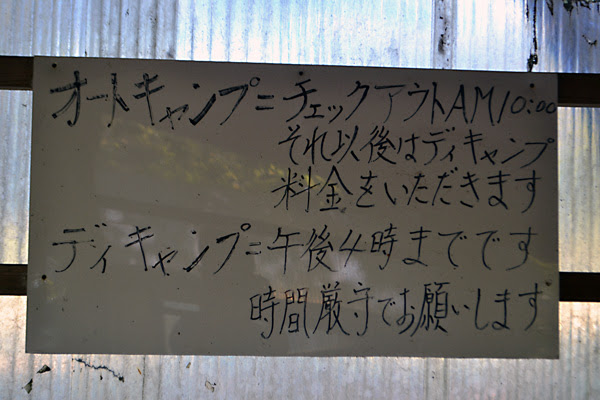 オートキャンプ=チェックアウトAM10:00
それ以後はディキャンプ
料金をいただきます
ディキャンプ=午後4時までです
時間厳守でお願いします